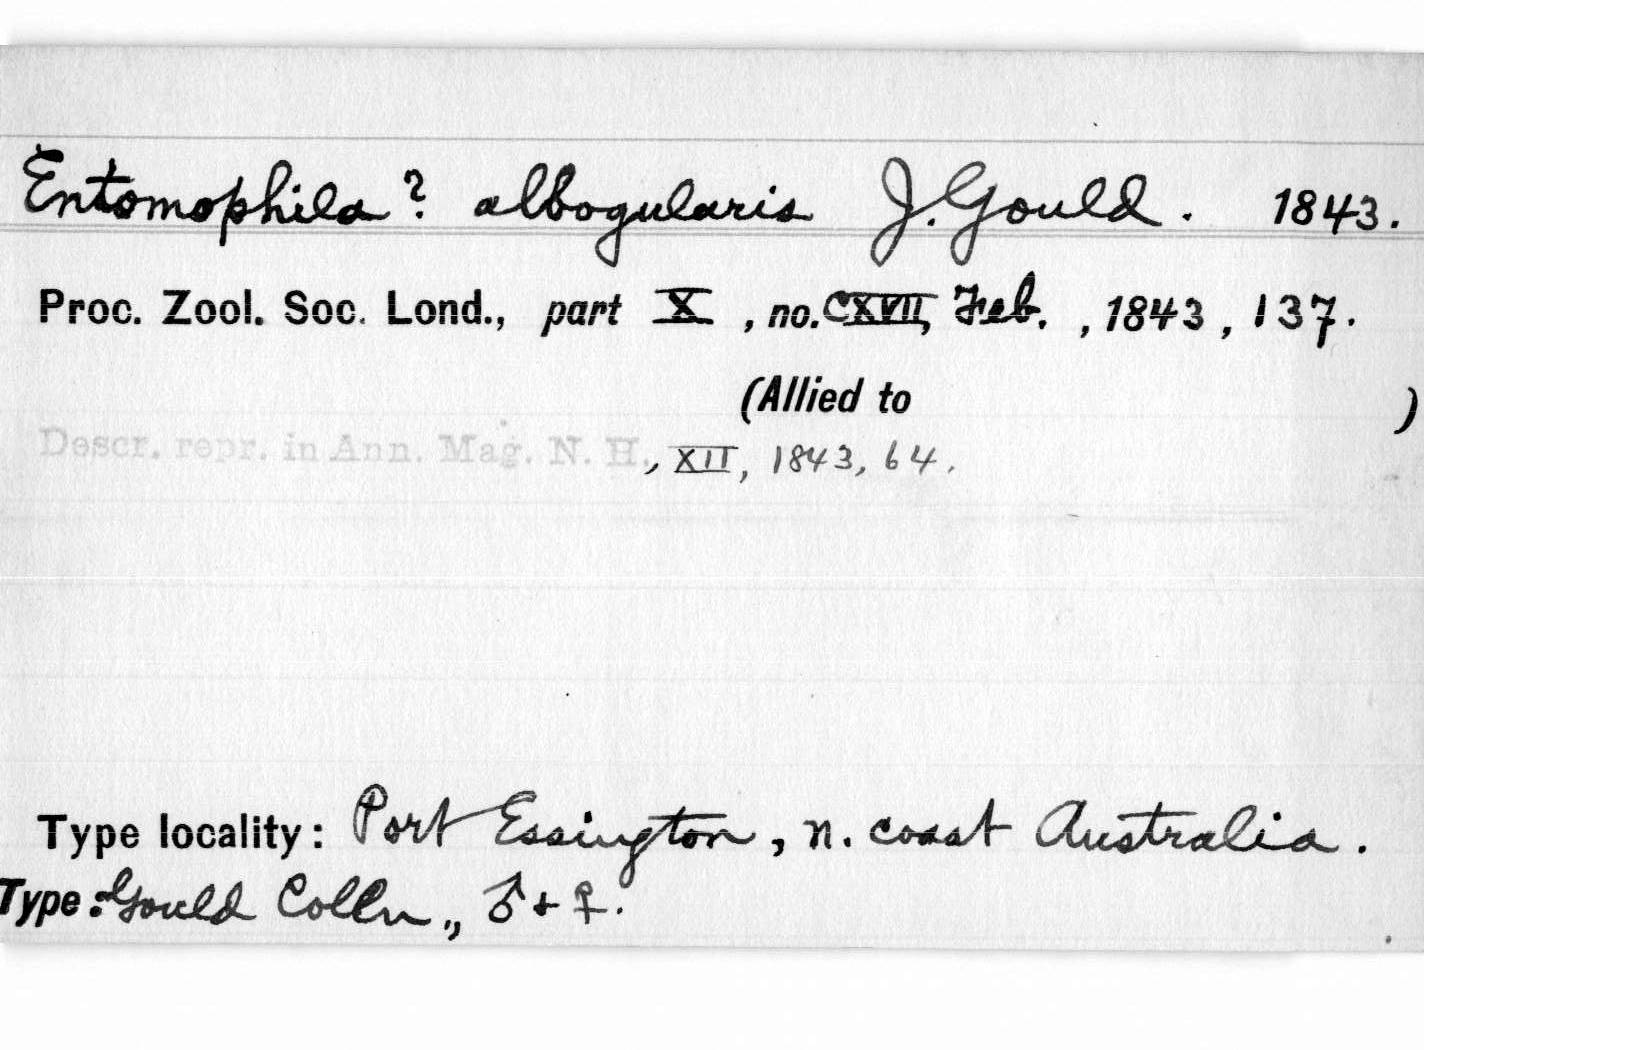 Entomophila? albogularis J. Gould. 1843.
Proc. Zool. Soc. Lond., part X, no. CXVII, Feb., 1843, 137.
(Allied to )
Descr. repr. in Ann. Mag. N. H., XII, 1843, 64.
Type locality: Port Essington, n. coast Australia.
Type: Gould Colln., ♂ + ♀.